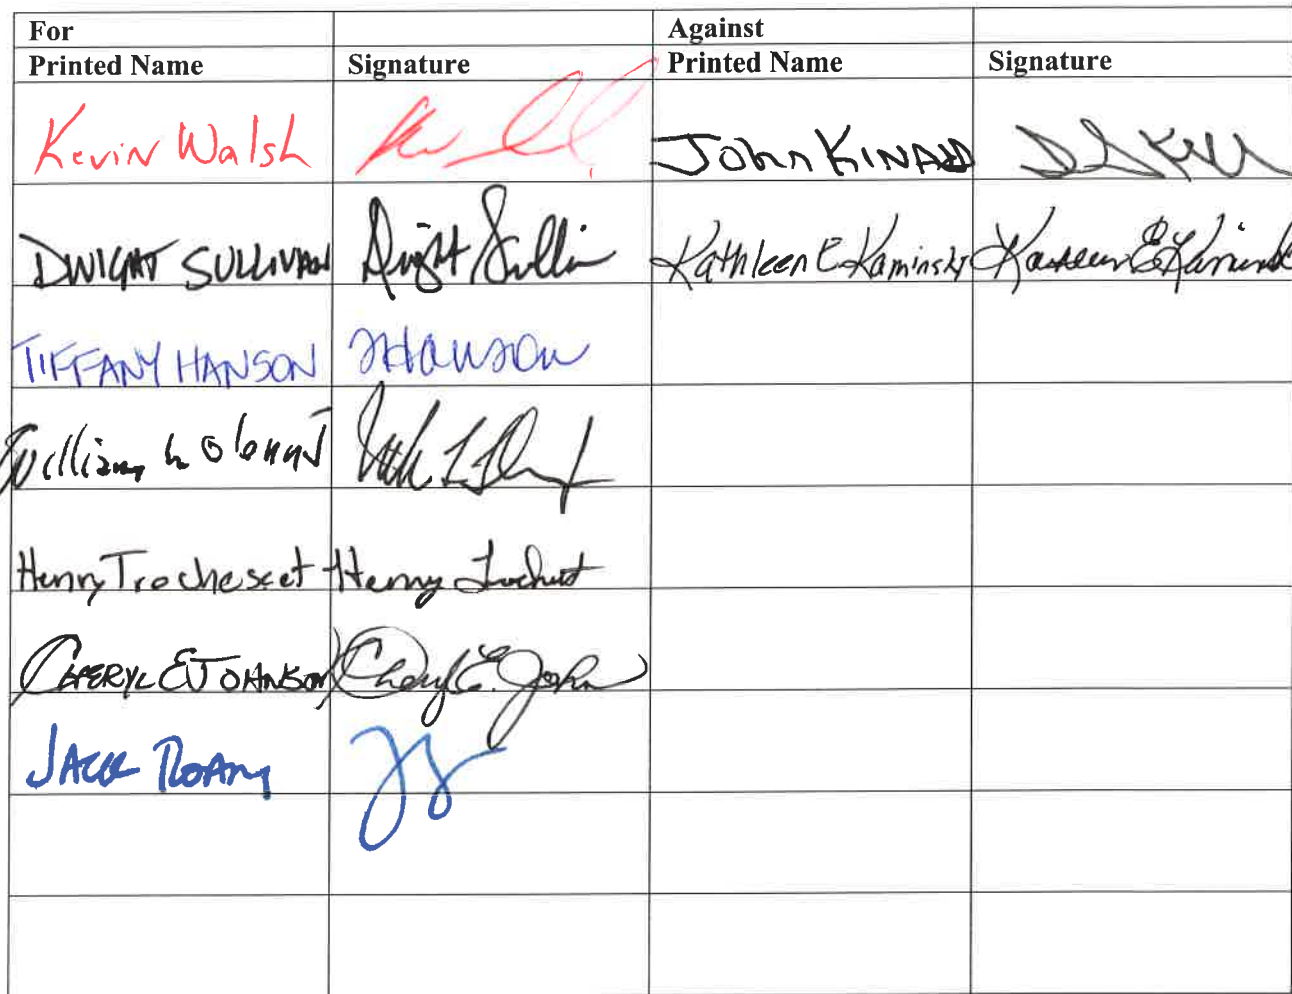 For Against
Printed Name Signature Printed Name Signature
Kevin Walsh John KINARD
DWIGHT SULLIVAN Dwight Sullivan Kathleen E Kaminski Kathleen E Kaminski
TIFFANY HANSON THanson
William L
Henry Trochesset Henry Trochesset
CHERYL E JOHNSON Cheryl E. John
JACK ROADY